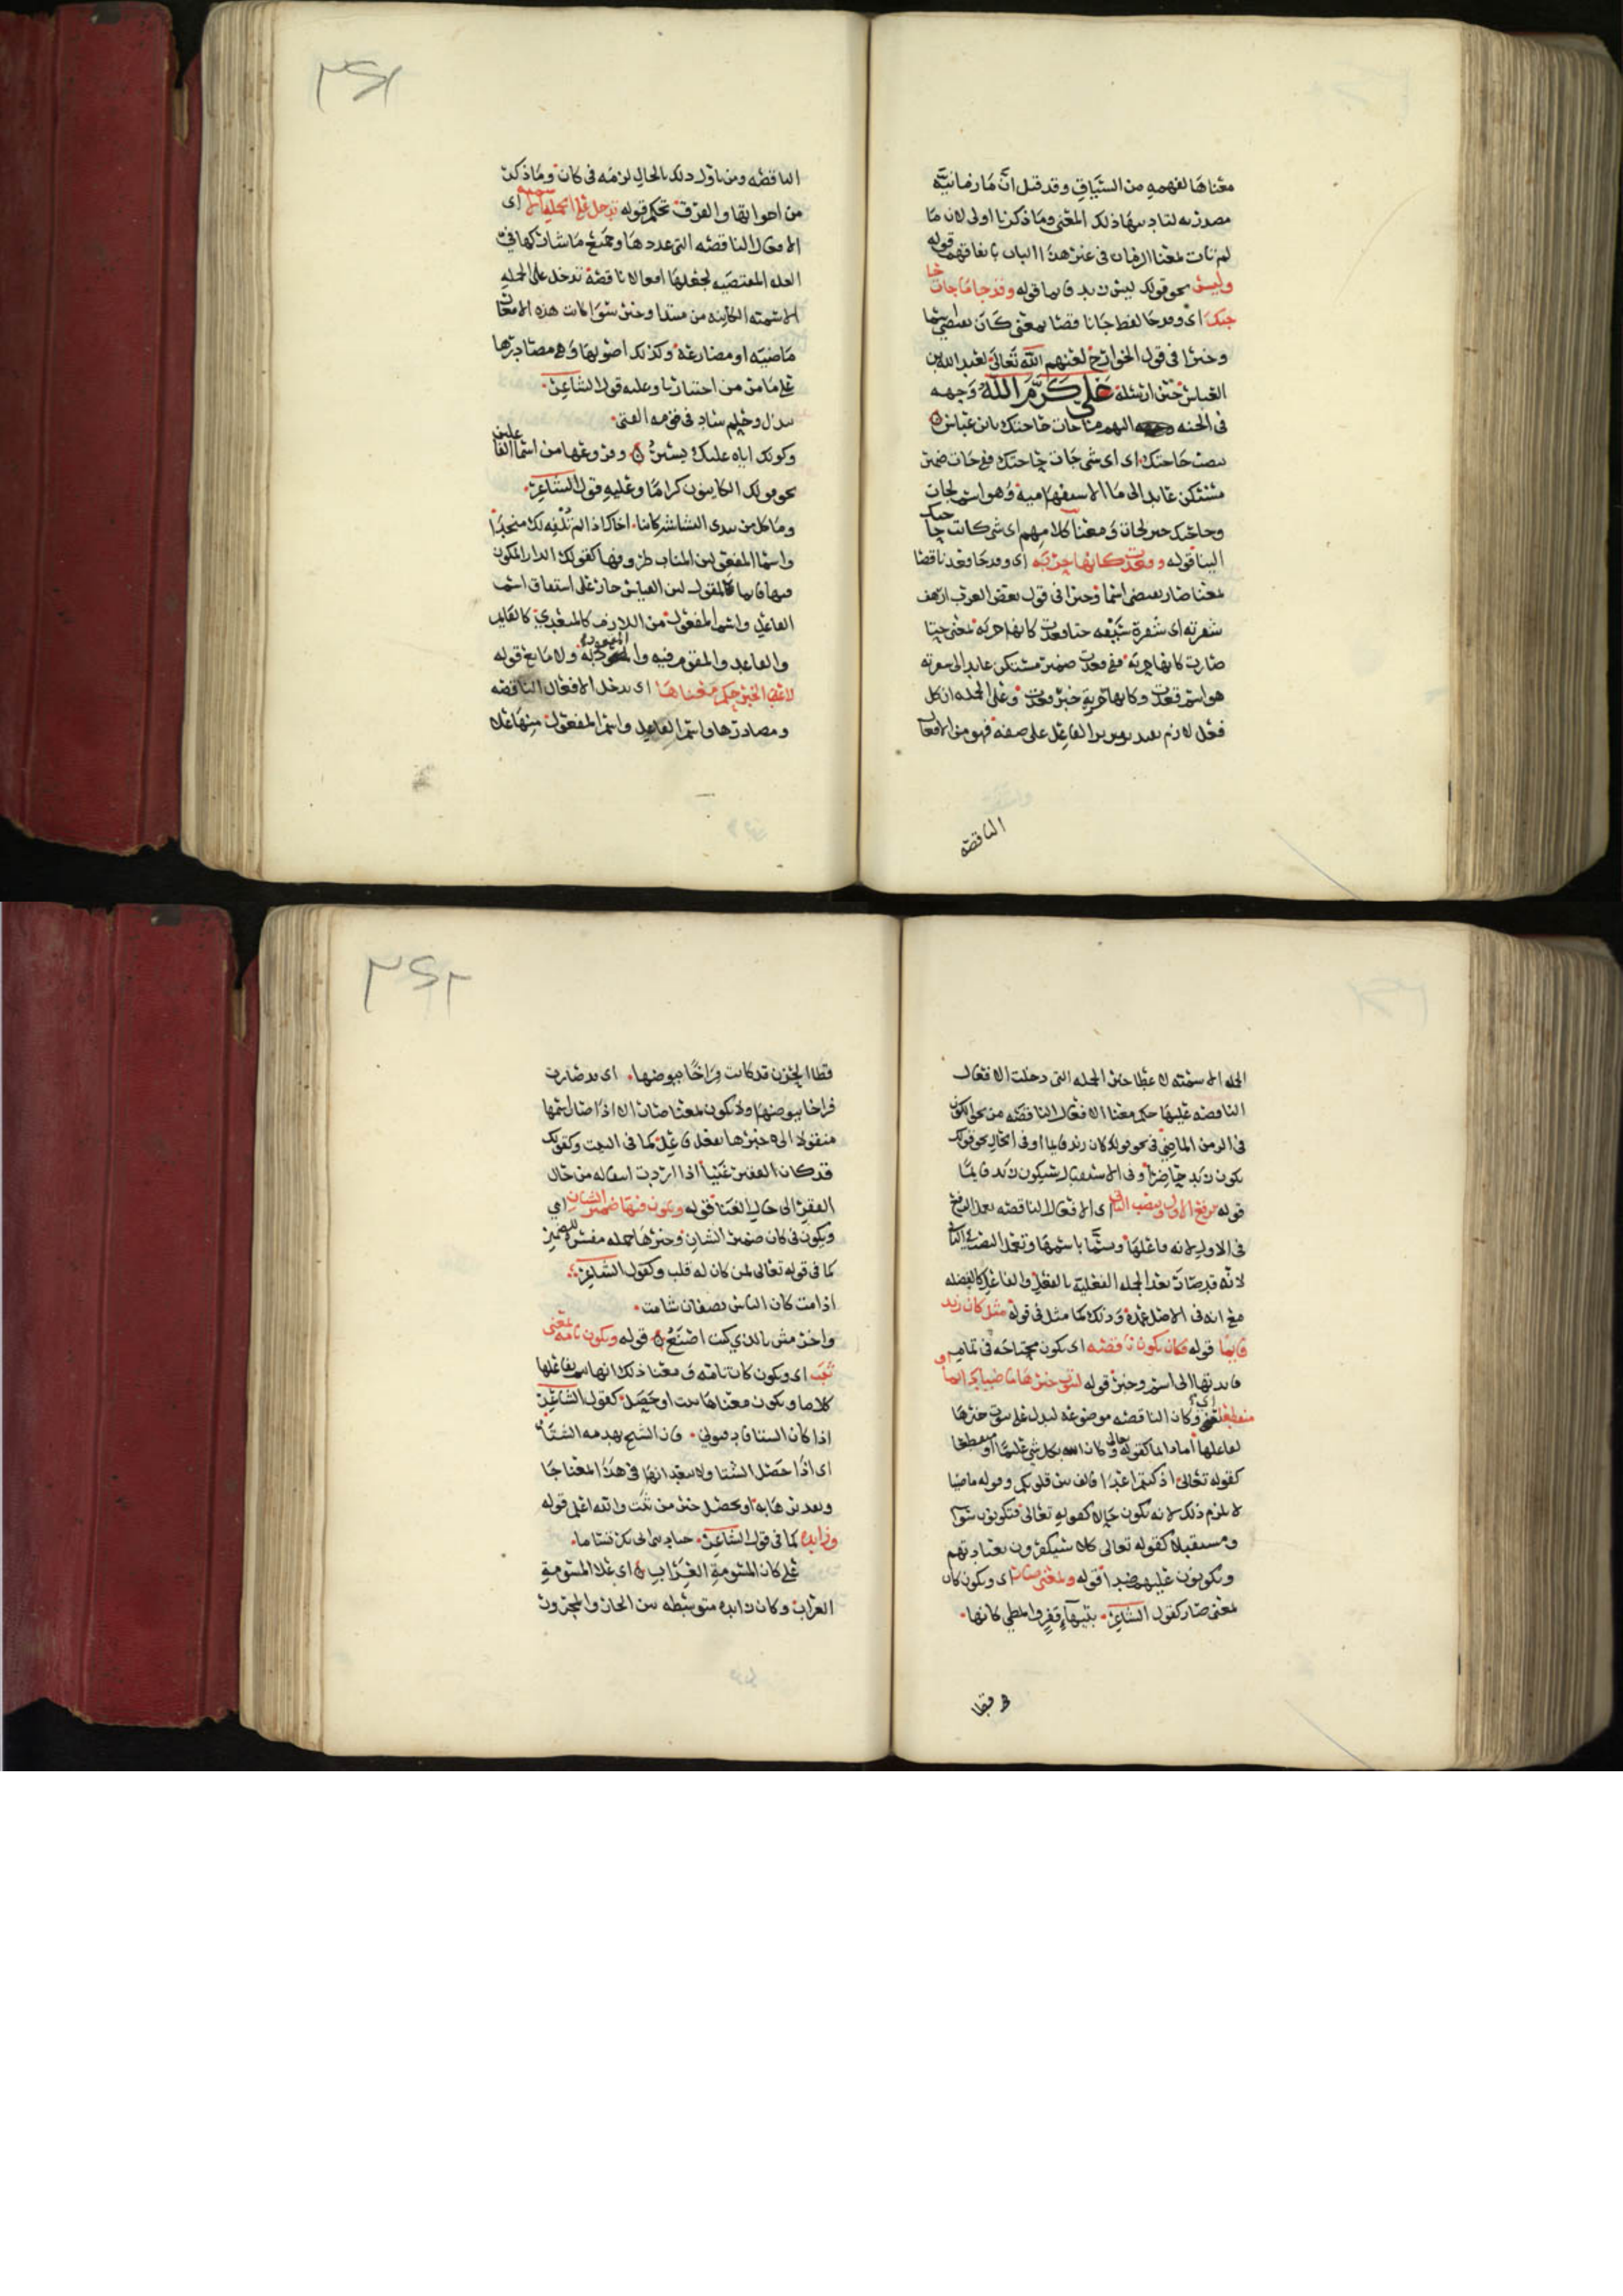 معناها لفهمه من السياق وقد قيل ان ما زمانيه
مصدريه لتاديتها ذلك المعنى وما ذكرنا اولى لان ما
لم تات لمعنا الزمان فى غير هذا الباب باتفاقهم قوله
وليس نحو قولك ليس زيد قايما قوله وقد جا ما جات حا
جتك اى وقد جا لفظ جا ناقصا بمعنى كان يقتضى اسما
وخبرا فى قول الخوارج لعنهم الله تعالى لعبد الله بن
العباس حين ارسله على كرم الله وجهه
فى الجنه اليهم ما جات حاجتك يا بن عباس
بنصب حاجتك اى اى شى جات حاجتك ففى جات ضمير
مستكن عايد الى ما الاستفهاميه وهو اسم لجات
وحاجتك خبر لجات ومعنا كلامهم اى شى كانت حاجتك
الينا قوله وقعدت كانها حربه اى وقد جا قعد ناقصا
بمعنا صار يقتضى اسما وخبرا فى قول بعض العرب ارهف
شفرته اى شفرة سيفه حتا قعدت كانها حربه بمعنى حتا
صارت كانها حربه ففى قعدت ضمير مستكن عايد الى شفرته
هو اسم قعدت وكانها حربه خبر قعدت وعلى الجمله ان كل
فعل لازم بعد تقرير الفاعل على صفه فهو من الافعال
الناقصه
٣٤١
الناقصه ومن تاول ذلك بالحال لزمه فى كان وما ذكرت
من اخواتها والفرق تحكم قوله تدخل على الجمله الاسميه اى
الافعال الناقصه التى عددها وجميع ما شاركها فى
العله المقتضيه لجعلها افعالا ناقصه تدخل على الجمله
الاسميه الكاينه من مبتدا وخبر سوا كانت هذه الافعال
ماضيه او مضارعه وكذلك اصولها وهى مصادرها
على ما من من اختيارنا وعليه قول الشاعر
ببذل وحلم ساد فى قومه الفتى
وكونك اياه عليك يسير وفروعها من اسما الفاعلين
نحو قولك الكاينون كراما وعليه قول الشاعر
وما كل من يبدى البشاشة كاينا اخاك اذا لم تلفه لك منجدا
واسما المفعولين المناب ظروفها كقولك الدار المكون
فيها قايما كالمقول لان القياس جاز على اشتقاق اسم
الفاعل واسم المفعول من اللازم كالمتعدى كالقايل
والقاعد والمقوم فيه والمقعود به ولا مانع قوله
لاعطا الخبر حكم معناها اى تدخل الافعال الناقصه
ومصادرها واسم الفاعل واسم المفعول منها على
الجمله الاسميه لاعطا خبر الجمله التى دخلت الافعال
الناقصه عليها حكم معنا الافعال الناقصه من نحو الكون
فى الزمن الماضى فى نحو قولك كان زيد قايما او فى الحال نحو قولك
يكون زيد حاضرا وفى الاستقبال سيكون زيد قايما
قوله فترفع الاول وتنصب الثانى اى الافعال الناقصه تعمل الرفع
فى الاول لانه فاعلها ويسمى باسمها وتعمل النصب فى الثانى
لانه قد صارت بعد الجمله الفعليه بالفعل والفاعل كالفضله
مع انه فى الاصل عمده وذلك كما مثل فى قوله مثل كان زيد
قايما قوله فكان تكون ناقصه اى تكون محتاجه فى تمام
فايدتها الى اسم وخبر قوله لثبوت خبرها ماضيا دايما او
منقطعا يعنى وكان الناقصه موضوعه لتدل على ثبوت خبرها
لفاعلها اما دايما كقوله تعالى وكان الله بكل شى عليما او منقطعا
كقوله تعالى اذ كنتم اعدا فالف بين قلوبكم وقوله ماضيا
لا يلزم ذلك لانه يكون حالا كقوله تعالى فتكونون سوا
ومستقبلا كقوله تعالى كلا سيكفرون بعبادتهم
ويكونون عليهم ضدا قوله وبمعنى صار اى ويكون كان
بمعنى صار كقول الشاعر بتيهاء قفر والمطي كانها
قطا
٣٤٢
قطا الحزن قد كانت فراخا بيوضها اى قد صارت
فراخا بيوضها ولا تكون بمعنا صار الا اذا صار اسمها
منقولا الى خبرها بفعل فاعل كما فى البيت وكقولك
قد كان الفقير غنيا اذا اردت انتقاله من حال
الفقر الى حال الغنا قوله ويكون فيها ضمير الشان اى
ويكون فى كان ضمير الشان وخبرها جمله مفسره للضمير
كما فى قوله تعالى لمن كان له قلب وكقول الشاعر
اذا مت كان الناس نصفان شامت
واخر مثن بالذي كنت اصنع قوله وتكون تامه بمعنى
ثبت اى وتكون كان تامه ومعنا ذلك انها تتم بفاعلها
كلاما ويكون معناها ثبت او حصل كقول الشاعر
اذا كان الشتا فادفيوني فان الشيخ يهدمه الشتا
اى اذا حصل الشتا ولا يبعد انها فى هذا المعنا جا
وبعد برهانه او يحصل خير من ثبت والله اعلم قوله
وزايده كما فى قول الشاعر جياد بنى ابى بكر تساما
على كان المسومة العراب اى على المسومة
العراب وكان زايده متوسطه بين الجار والمجرور